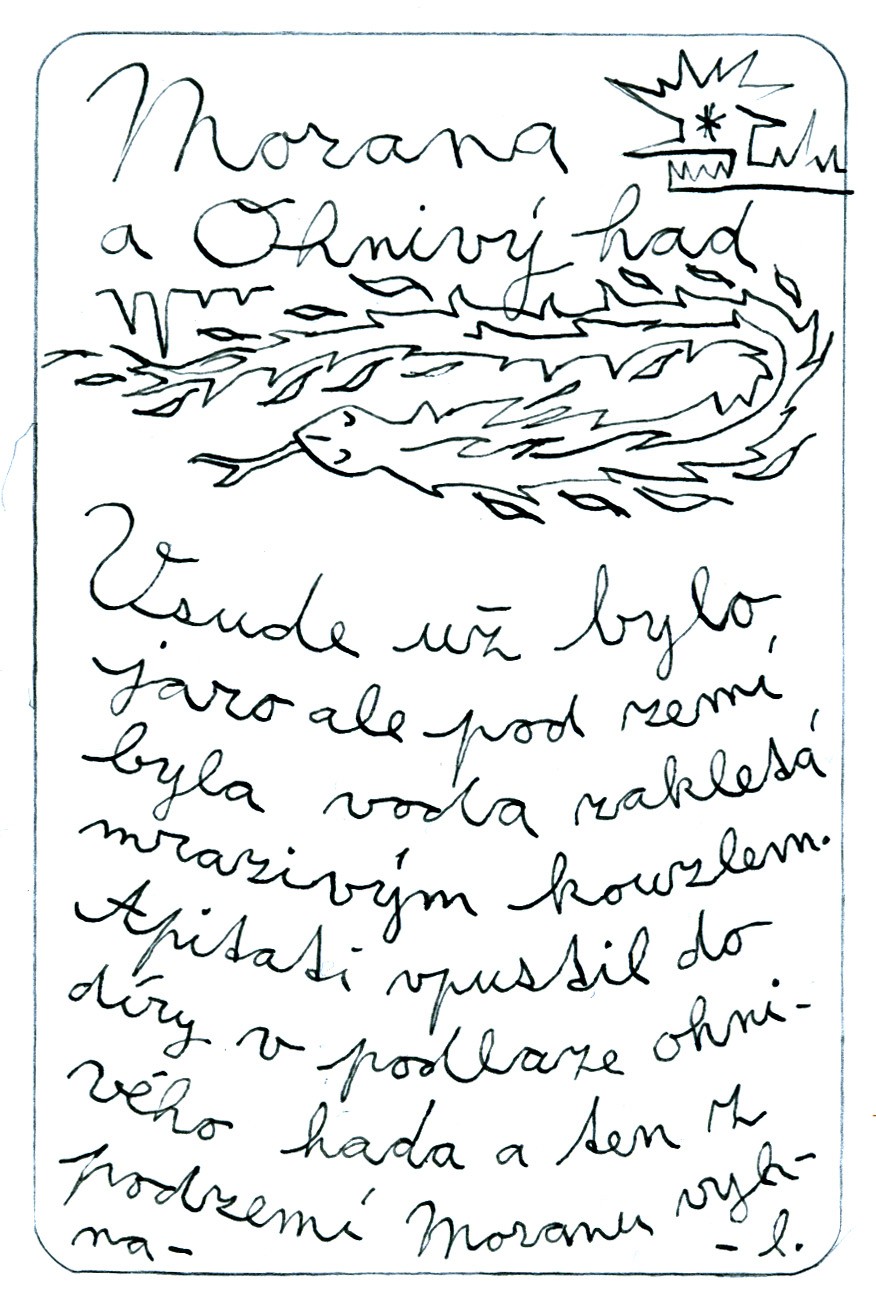 Morana
a Ohnivý had
Vsude už bylo
jaro ale pod zemí
byla voda zakletá
mrazivým kouzlem.
Apitati vpustil do
díry v podlaze ohni-
vého hada a ten z
podzemí Moranu vyh-
na- - l.